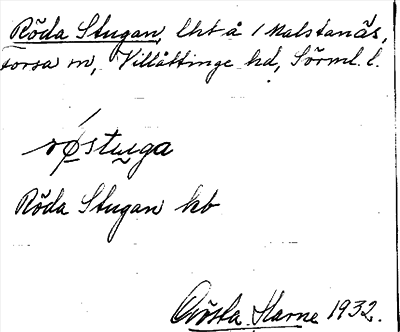 Röda Stugan, lht å 1 Malstanäs,
Torsa sn, Villåttinge hd, Sörml. l.
røstuga
Röda Stugan kb
Gösta Harne 1932.